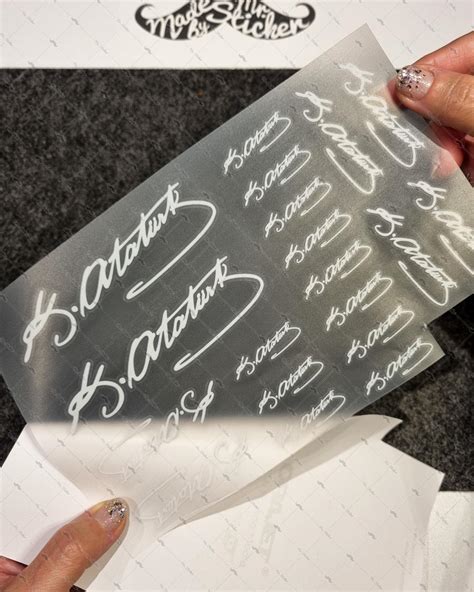 Made Mr.
by Sticker
K. Ataturk
K. Ataturk
K. Ataturk
K. Ataturk
K. Ataturk
K. Ataturk
K. Ataturk
K. Ataturk
K. Ataturk
K. Ataturk
K. Ataturk
K. Ataturk
K. Ataturk
K. Ataturk
K. Ataturk
K. Ataturk
K. Ataturk